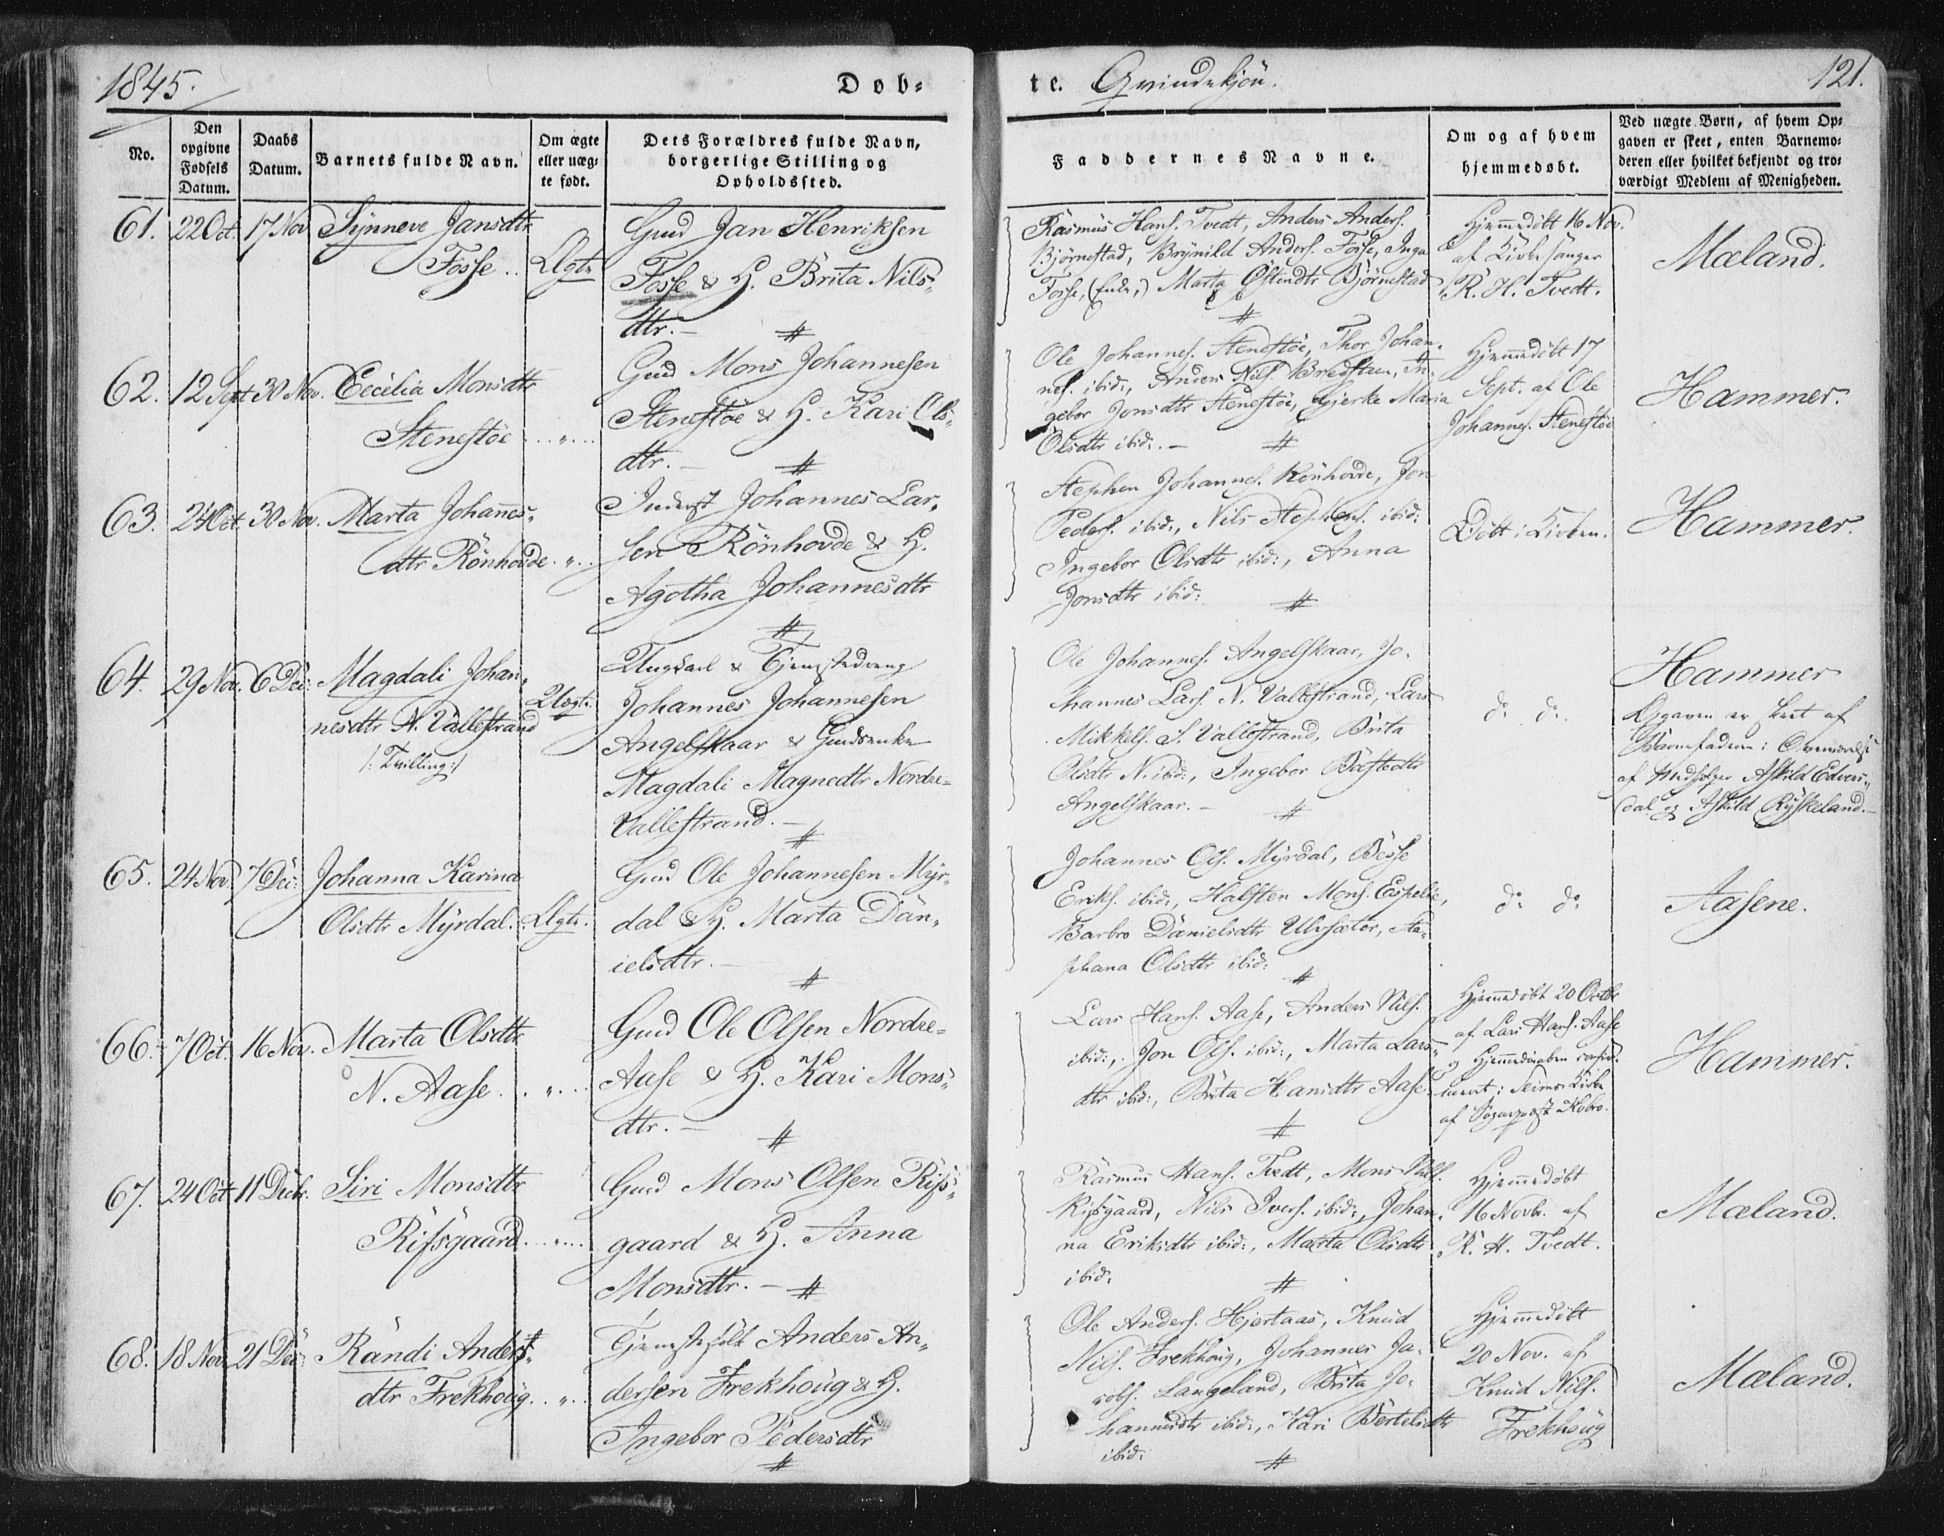 1845.
Døb-
te. Qvindekjøn.
121.
No.
Den opgivne Fødsels Datum.
Daabs Datum.
Barnets fulde Navn.
Om ægte eller uæg- te født.
Dets Forældres fulde Navn, borgerlige Stilling og Opholdssted.
Faddernes Navne.
Om og af hvem hjemmedøbt.
Ved uægte Børn, af hvem Op- gaven er skeet, enten Barnemo- deren eller hvilket bekjendt og tro- værdigt Medlem af Menigheden.
61. 22 Oct. 17 Nov Synneve Jansdtr
Fosse .. Ægte
Gmd Jan Henriksen
Fosse & H. Brita Nils-
dtr. —
Rasmus Hans. Tvedt, Anders Anders.
Bjørnestad, Brynild Anders. Fosse, Inga
Fosse, Marta Østendtr Bjørnestad
Hjemmedøbt 16 Nov.
af Kirkesanger
R. H. Tvedt.
Mæland.
62. 12 Sept 30 Nov. Cecilia Monsdtr
Stenestöe
Gmd Mons Johannesen
Stenestöe & H. Kari Ols-
dtr. —
Ole Johannes. Stenestöe, Thor Johan-
nes. ibid:, Anders Nils. In-
gebor Jonsdtr Stenestöe, Gjerke Maria
Olsdtr ibid: —
Hjemmedøbt 17
Sept. af Ole
Johannes. Stenestöe
Hammer.
63. 24 Oct. 30 Nov. Marta Johannes-
dtr Rönhovde
Inderst Johannes Lar-
sen Rönhovde & H.
Agotha Johannesdtr
Stephen Johannes. Rönhovde, Jon
Peders. ibid:, Nils Stephens. ibid:
Ingebor Olsdtr ibid:, Anna
Jonsdtr ibid:
Døbt i Kirken.
Hammer.
64. 29 Nov. 6 Dec: Magdali Johan-
nesdtr N. Vallestrand
/: Tvilling :/
Uægte
Ungkarl & Tjenestedreng
Johannes Johannesen
Angelskaar &
Magdali Magnedtr Nordre-
Vallestrand. —
Ole Johannes. Angelskaar, Jo-
hannes Lars. N. Vallestrand, Lars
Mikkels. S. Vallestrand, Brita
Olsdtr N. ibid:, Ingebor
Angelskaar. —
do do
Hammer
Opgaven er skeet af
Barnefaderen i Overværelse
af Medfølger Askild Edvers-
dal og Askild Ryskeland. —
65. 24 Nov. 7 Dec: Johanna Karina
Olsdtr Myrdal. Ægte.
Gmd Ole Johannesen Myr-
dal & H. Marta Dan-
ielsdtr. —
Johannes Ols. Myrdal, Besse
Eriks. ibid:, Halsten Mons. Espelie,
Barbro Danielsdtr Ulvsæter,
Olsdtr ibid:
do do
Aasene.
66. 7 Oct. 16 Nov. Marta Olsdtr
N. Aase
Gmd Ole Olsen Nordre-
Aase & H. Kari Mons-
dtr. —
Lars Hans. Aase, Anders Nils.
ibid:, Jon Ols. ibid:, Marta Lars-
dtr ibid:, Brita Hansdtr Aase
Hjemmedøbt 20 Octbr
af Lars Hans. Aase
og Hjemmedaaben confir-
meret i Seims Kirke
af Sognepræst Kobro.
Hammer.
67. 24 Oct. 11 Decbr. Siri Monsdtr
Risgaard
Gmd Mons Olsen Ris-
gaard & H. Anna
Monsdtr. —
Rasmus Hans. Tvedt, Mons Nils.
Risgaard, Nils Ivers. ibid:, Johan-
na Eriksdtr ibid:, Marta Olsdtr
ibid:
Hjemmedøbt
16 Novbr. af
R. H. Tvedt.
Mæland.
68. 18 Nov. 21 Dec: Randi Anders-
dtr Frekhoug
Tjenestefolk Anders An-
dersen Frekhoug & H.
Ingebor Pedersdtr
Ole Anders. Hjertaas, Knud
Nils. Frekhoug, Johannes Ja-
cobs. Langeland, Brita Jo-
hannesdtr ibid:, Kari Bertelsdtr
ibid:
Hjemmedøbt
20 Nov. af
Knud Nils.
Frekhoug
Mæland.